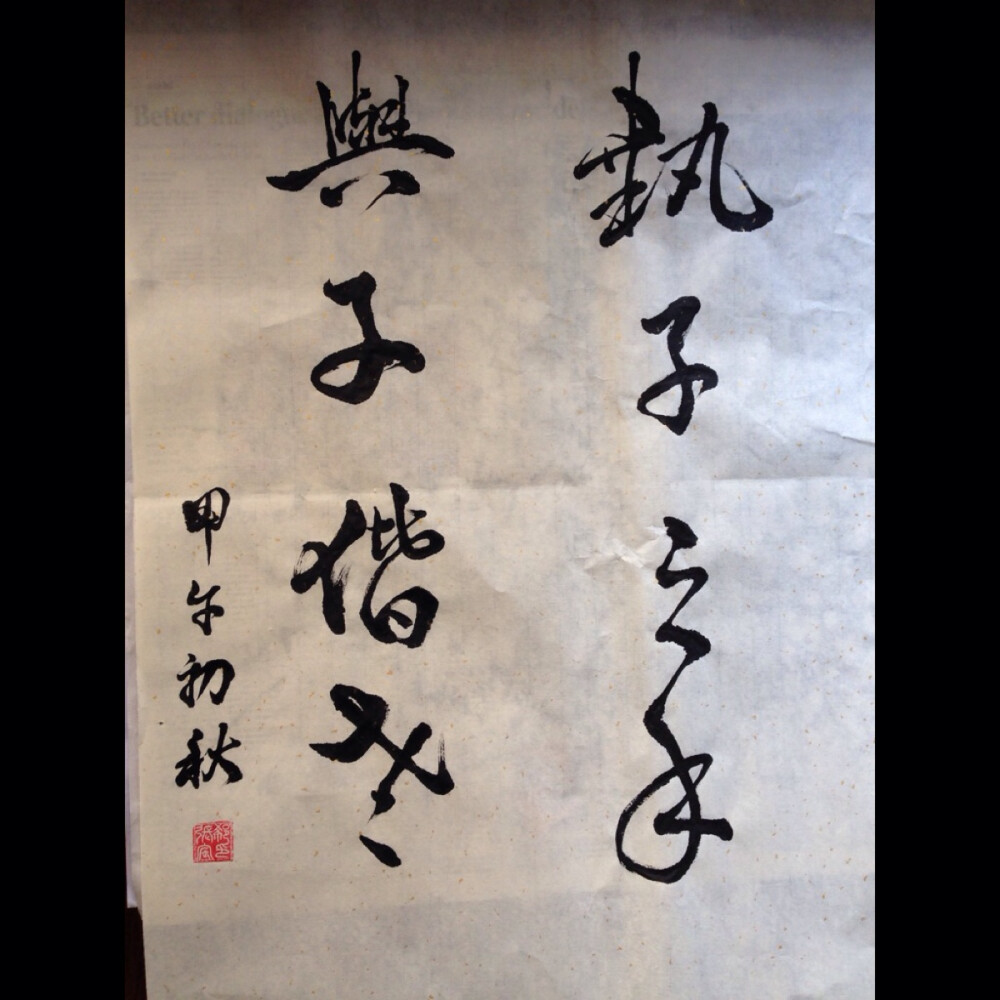 執子之手
與子偕老
甲午初秋
Better dialogue
de